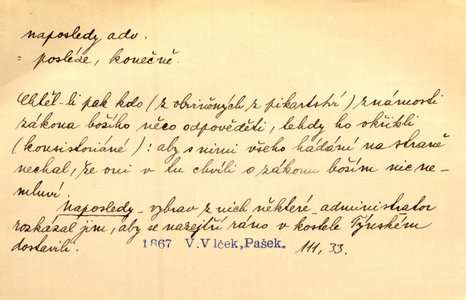 naposledy adv.
= posléze, konečně.
Chtěl-li pak kdo (z obviněných z pikartství) známosti
zákona božího něco odpověděti, tehdy ho okřikli
(konsistoriáné): aby s nimi všeho hádání na straně
nechal, že oni v tu chvíli o zákonu božím nic ne-
mluví.
naposledy vybrav z nich některé administrator
rozkázal jim, aby se nazejtří ráno v kostele Týnském
dostavili. 1867 V.Vlček,Pašek. 111, 33.